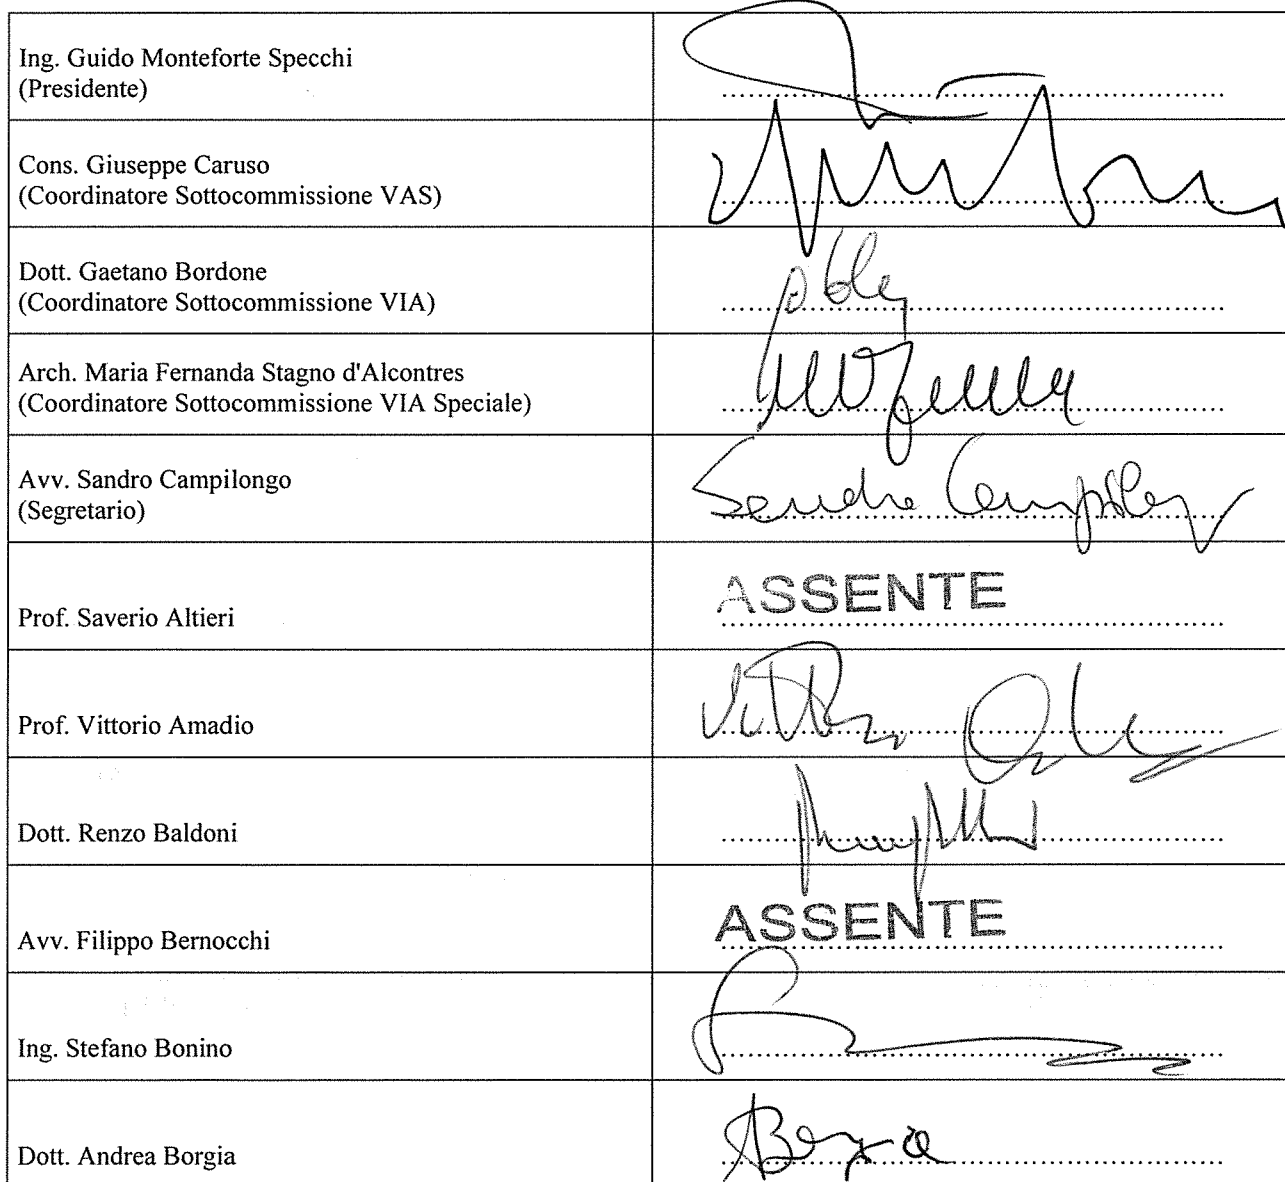 Ing. Guido Monteforte Specchi
(Presidente)
Cons. Giuseppe Caruso
(Coordinatore Sottocommissione VAS)
Dott. Gaetano Bordone
(Coordinatore Sottocommissione VIA)
Arch. Maria Fernanda Stagno d'Alcontres
(Coordinatore Sottocommissione VIA Speciale)
Avv. Sandro Campilongo
(Segretario)
Sandro Campilongo
Prof. Saverio Altieri
ASSENTE
Prof. Vittorio Amadio
Dott. Renzo Baldoni
Avv. Filippo Bernocchi
ASSENTE
Ing. Stefano Bonino
Dott. Andrea Borgia
ABorgia